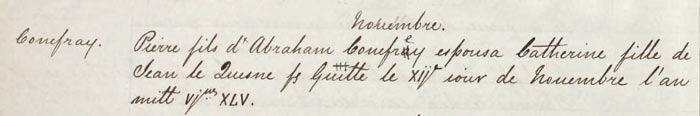 Nouembre.
Conefray. Pierre fils d'Abraham Conefrey espousa Catherine fille de
Jean le Quesne fs Guitte le XIJe iour de Nouembre l'an
mitt VJ XLV.